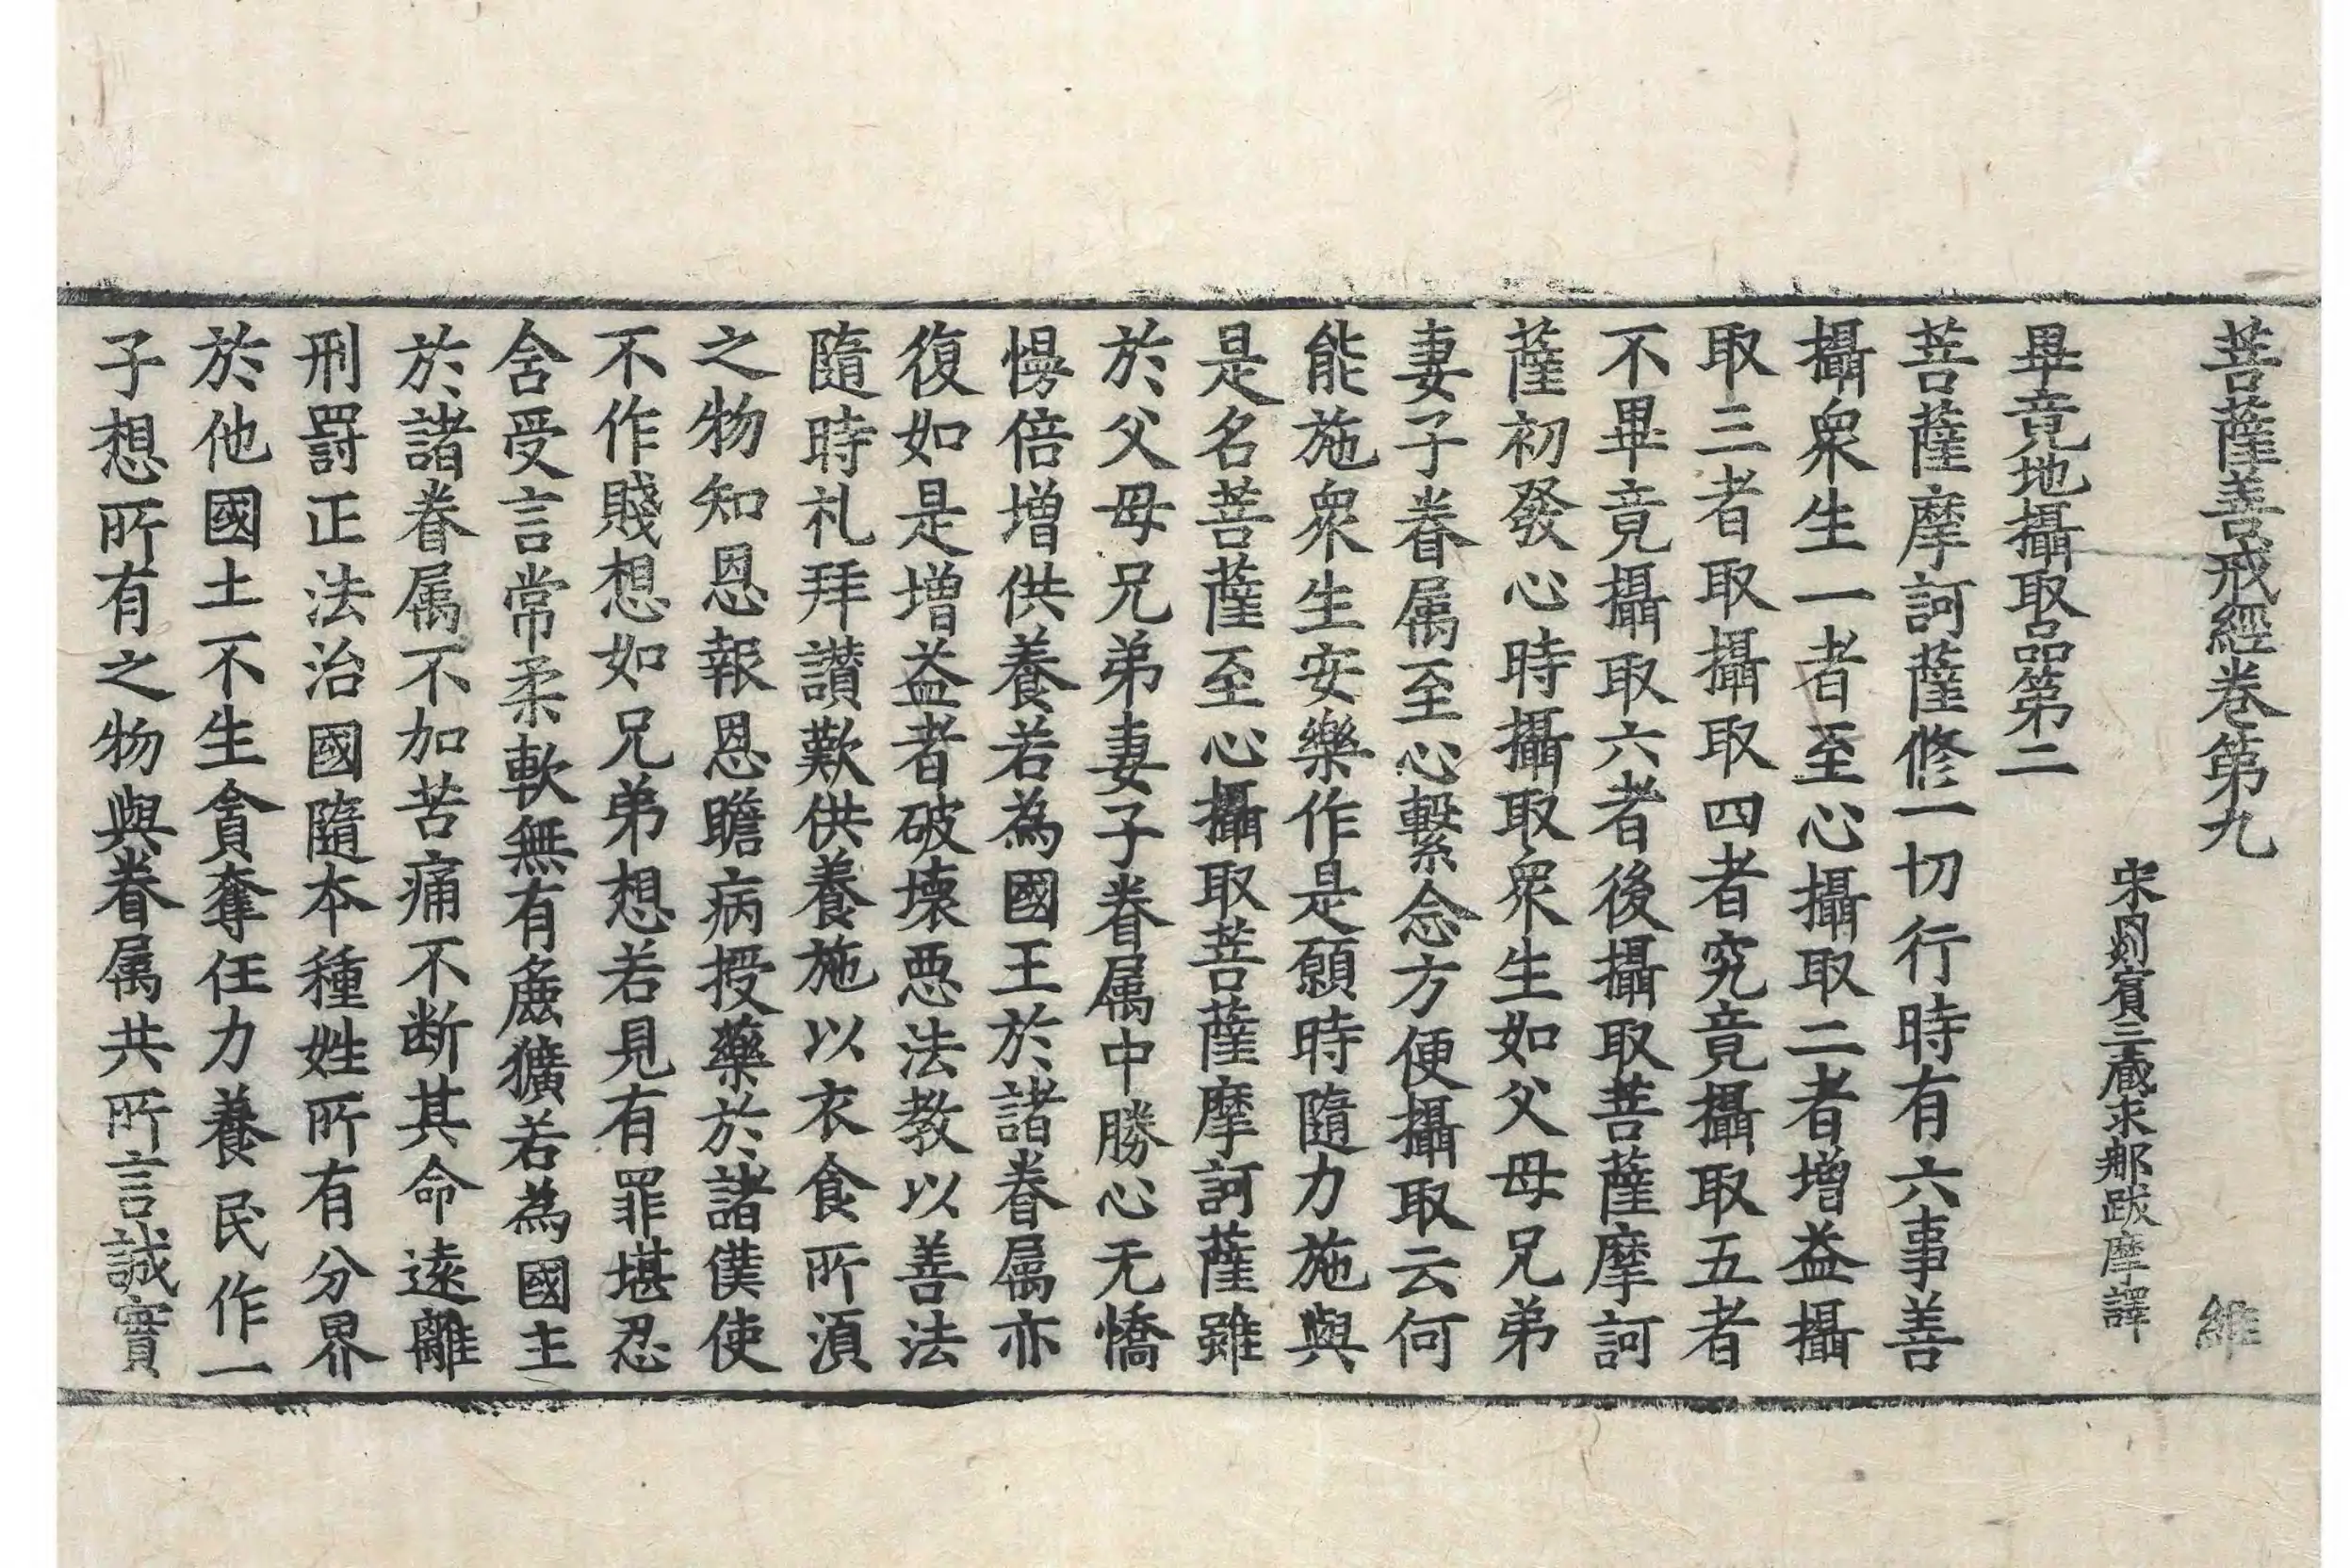 菩薩善戒經卷第九 維
宋罽賓三蔵求那跋摩譯
畢竟地攝取品第二
菩薩摩訶薩修一切行時有六事善
攝衆生一者至心攝取二者增益攝
取三者取攝取四者究竟攝取五者
不畢竟攝取六者後攝取菩薩摩訶
薩初發心時攝取衆生如父母兄弟
妻子眷属至心繫念方便攝取云何
能施衆生安樂作是願時隨力施與
是名菩薩至心攝取菩薩摩訶薩雖
於父母兄弟妻子眷属中勝心无憍
慢倍增供養若為國王於諸眷属亦
復如是增益者破壊惡法教以善法
隨時礼拜讃歎供養施以衣食所湏
之物知恩報恩瞻病授藥於諸僕使
不作賤想如兄弟想若見有罪堪忍
舍受言常柔軟無有麁獷若為國主
於諸眷属不加苦痛不断其命遠離
刑罰正法治國隨本種姓所有分界
於他國土不生貪奪任力養民作一
子想所有之物與眷属共所言誠實